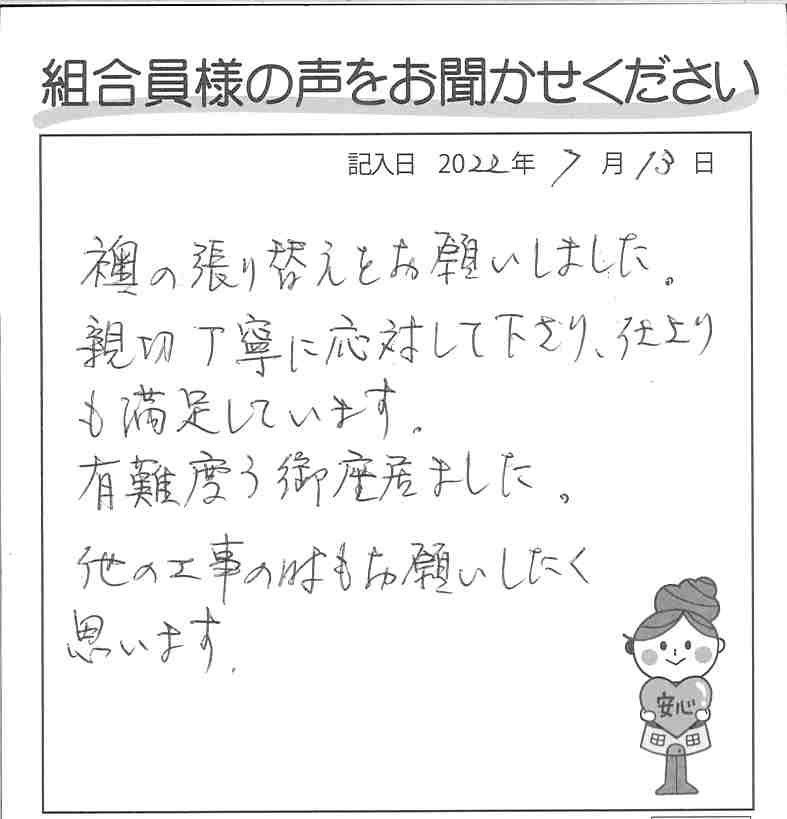 組合員様の声をお聞かせください
記入日 2022年 7月 13日
襖の張り替えをお願いしました。
親切丁寧に応対して下さり、仕上り
も満足しています。
有難度う御座居ました。
他の工事の時もお願いしたく
思います。
安心